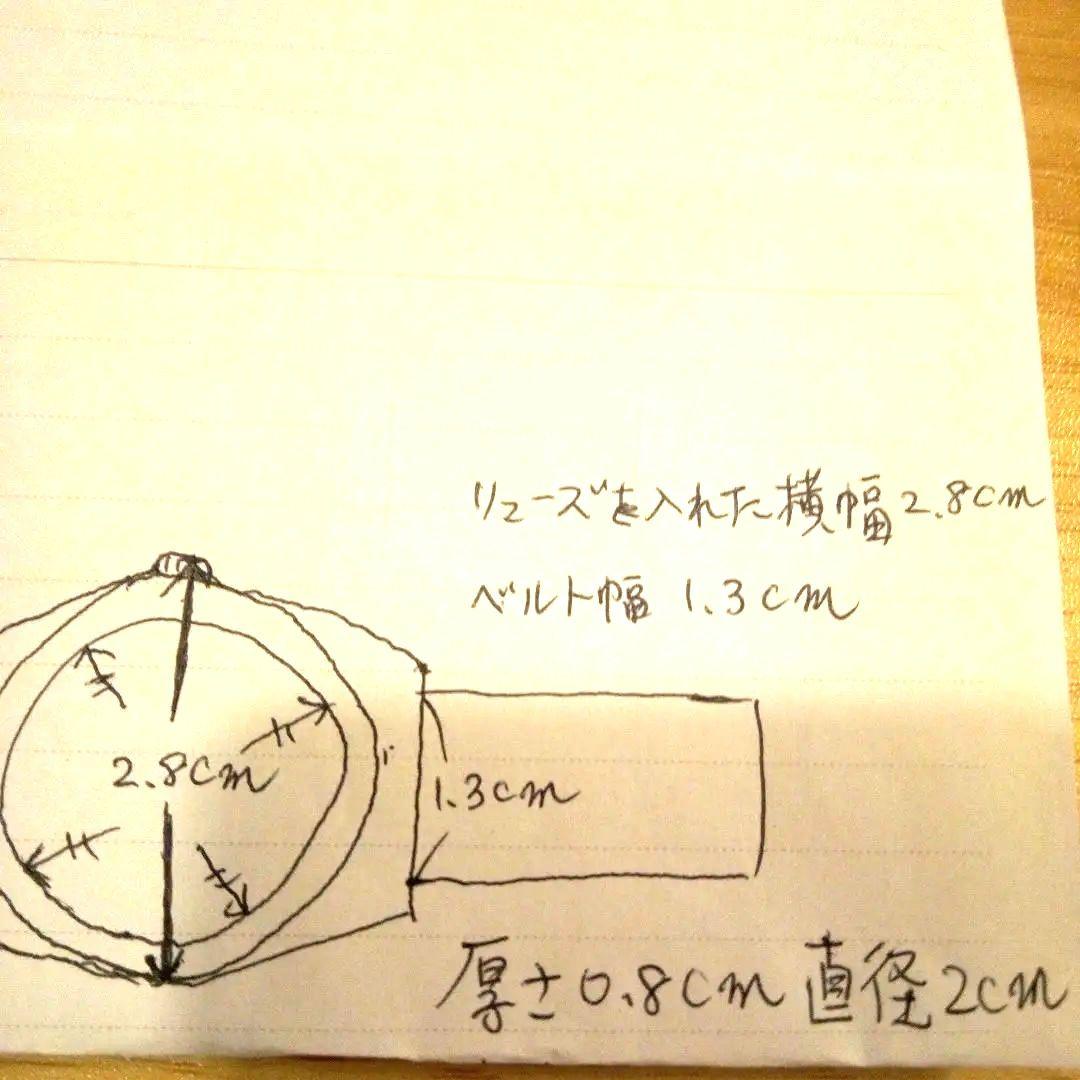 リューズを入れた横幅2.8cm
ベルト幅 1.3cm
2.8cm
1.3cm
厚さ0.8cm 直径2cm